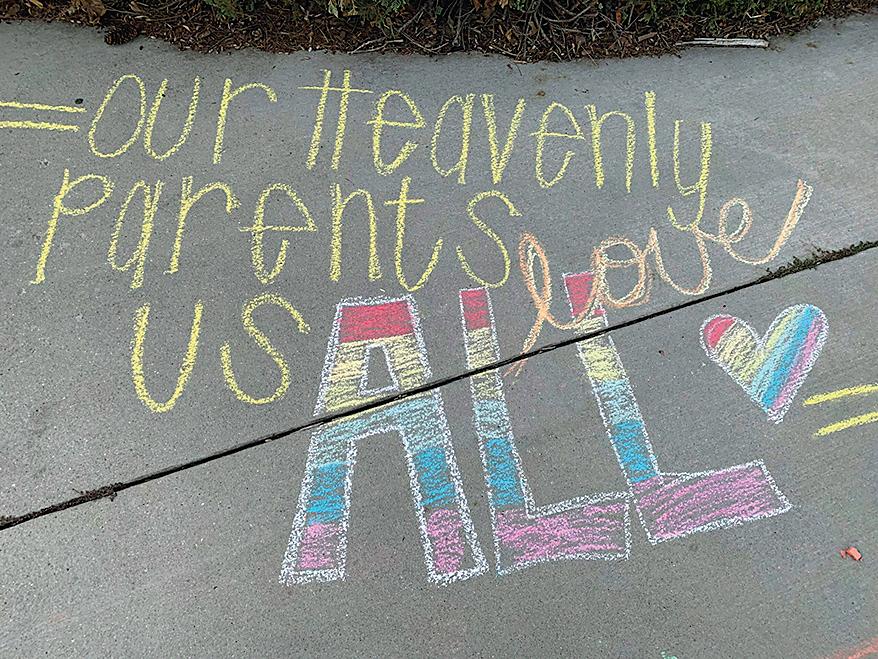 = Our Heavenly
Parents love
us ALL =